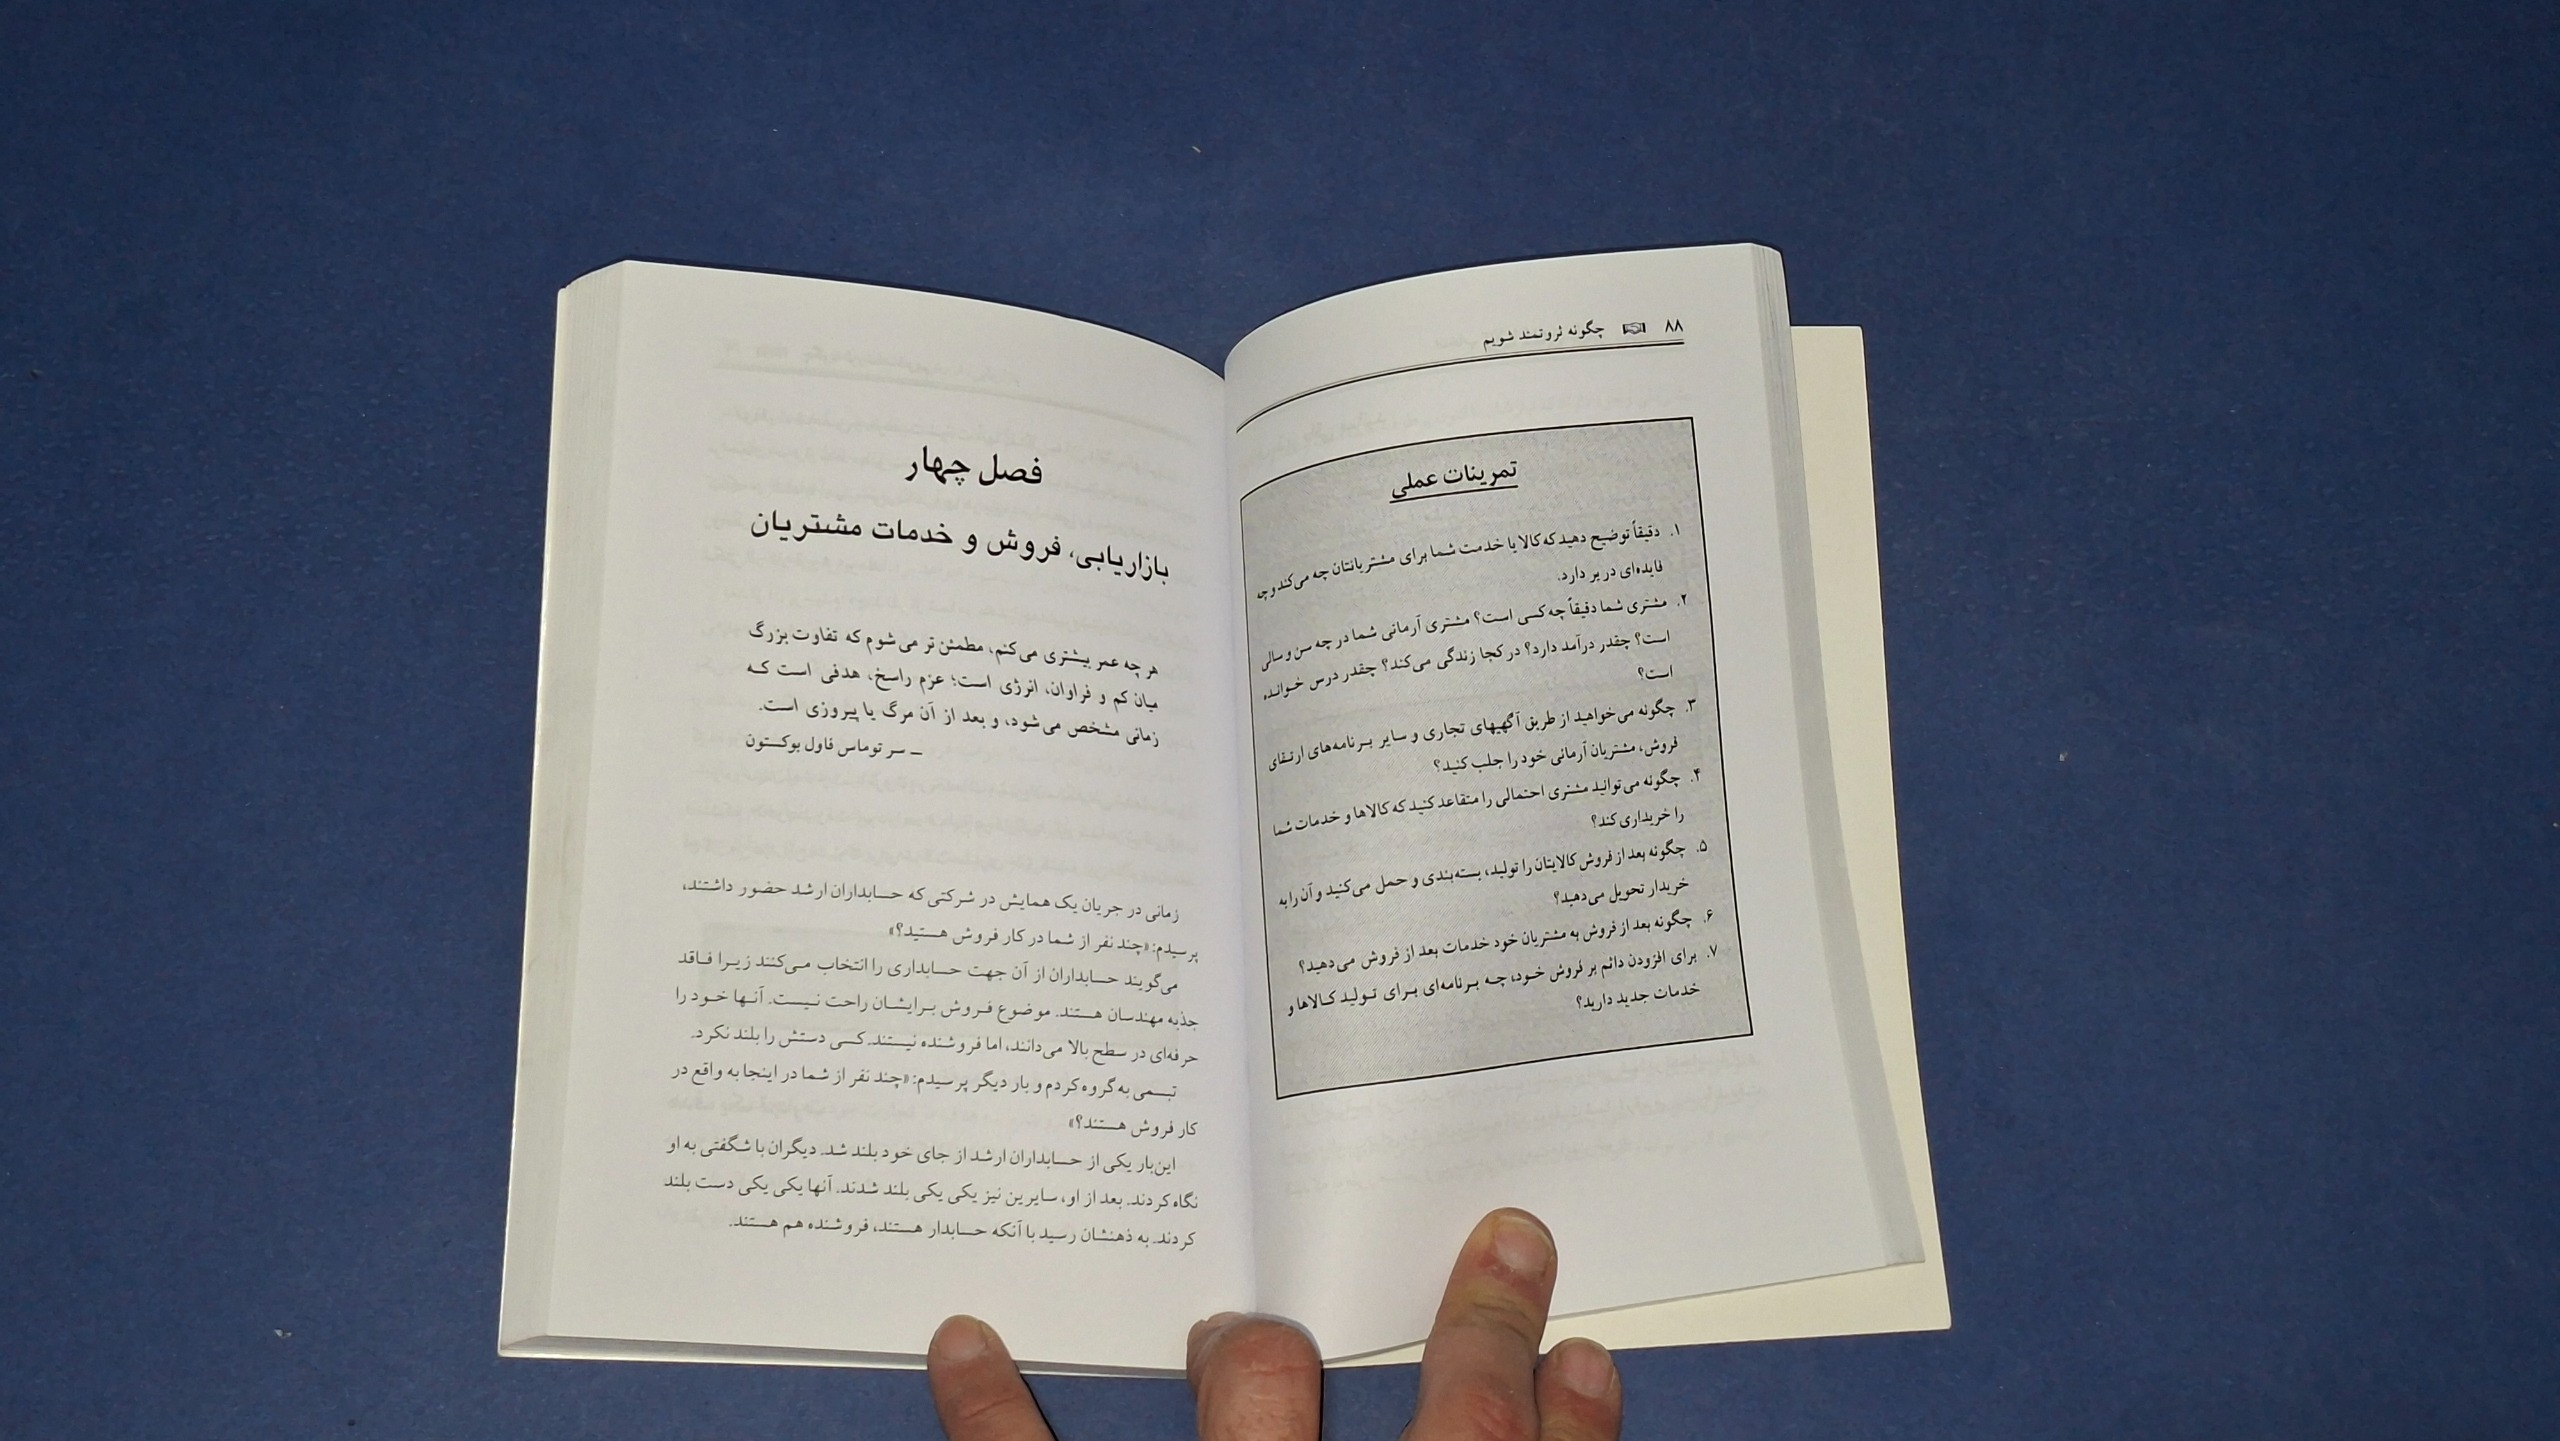 ۸۸ چگونه ثروتمند شویم
تمرینات عملی
۱. دقیقاً توضیح دهید که کالا یا خدمت شما برای مشتریانتان چه می‌کند و چه
فایده‌ای در بر دارد.
۲. مشتری شما دقیقاً چه کسی است؟ مشتری آرمانی شما در چه سن و سالی
است؟ چقدر درآمد دارد؟ در کجا زندگی می‌کند؟ چقدر درس خوانده
است؟
۳. چگونه می‌خواهید از طریق آگهیهای تجاری و سایر برنامه‌های ارتقای
فروش، مشتریان آرمانی خود را جلب کنید؟
۴. چگونه می‌توانید مشتری احتمالی را متقاعد کنید که کالاها و خدمات شما
را خریداری کند؟
۵. چگونه بعد از فروش کالایتان را تولید، بسته‌بندی و حمل می‌کنید و آن را به
خریدار تحویل می‌دهید؟
۶. چگونه بعد از فروش به مشتریان خود خدمات بعد از فروش می‌دهید؟
۷. برای افزودن دائم بر فروش خود، چه برنامه‌ای برای تولید کالاها و
خدمات جدید دارید؟
فصل چهار
بازاریابی، فروش و خدمات مشتریان
هر چه عمر بیشتری می‌کنم، مطمئن‌تر می‌شوم که تفاوت بزرگ
میان کم و فراوان، انرژی است؛ عزم راسخ، هدفی است که
زمانی مشخص می‌شود، و بعد از آن مرگ یا پیروزی است.
ـ سر توماس فاول بوکستون
زمانی در جریان یک همایش در شرکتی که حسابداران ارشد حضور داشتند،
پرسیدم: «چند نفر از شما در کار فروش هستید؟»
می‌گویند حسابداران از آن جهت حسابداری را انتخاب می‌کنند زیرا فاقد
جذبه مهندسان هستند. موضوع فروش برایشان راحت نیست. آنها خود را
حرفه‌ای در سطح بالا می‌دانند، اما فروشنده نیستند. کسی دستش را بلند نکرد.
تبسمی به گروه کردم و بار دیگر پرسیدم: «چند نفر از شما در اینجا به واقع در
کار فروش هستند؟»
این‌بار یکی از حسابداران ارشد از جای خود بلند شد. دیگران با شگفتی به او
نگاه کردند. بعد از او، سایرین نیز یکی یکی بلند شدند. آنها یکی یکی دست بلند
کردند. به ذهنشان رسید با آنکه حسابدار هستند، فروشنده هم هستند.